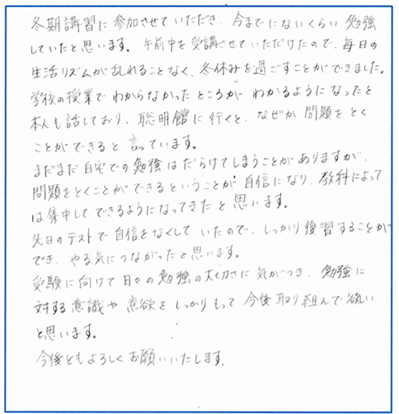 冬期講習に参加させていただき、今までにないくらい勉強
していたと思います。午前中を受講させていただけたので、毎日の
生活リズムが乱れることなく、冬休みを過ごすことができました。
学校の授業でわからなかったところがわかるようになったと
本人も話しており、聡明館に行くと、なぜか問題をとく
ことができると言っています。
まだまだ自宅での勉強はだらけてしまうことがありますが、
問題をとくことができるということが自信になり、教科によって
は集中してできるようになってきたと思います。
先日のテストで自信をなくしていたので、しっかり復習することが
でき、やる気につながったと思います。
受験に向けて日々の勉強の大切さに気がつき、勉強に
対する意識や意欲をしっかりもって今後取り組んで欲しい
と思います。
今後ともよろしくお願いいたします。